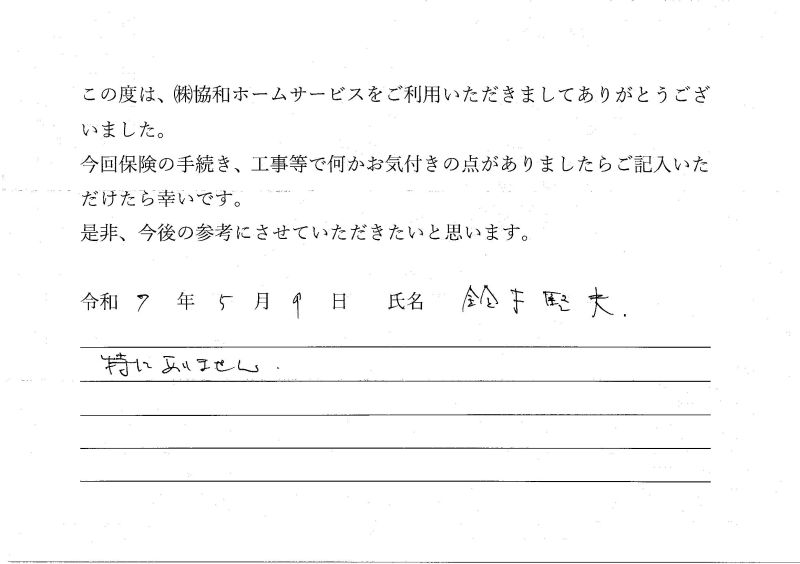 この度は、㈱協和ホームサービスをご利用いただきましてありがとうござ
いました。
今回保険の手続き、工事等で何かお気付きの点がありましたらご記入いた
だけたら幸いです。
是非、今後の参考にさせていただきたいと思います。
令和 7 年 5 月 9 日 氏名 鈴木 夫.
特にありません.